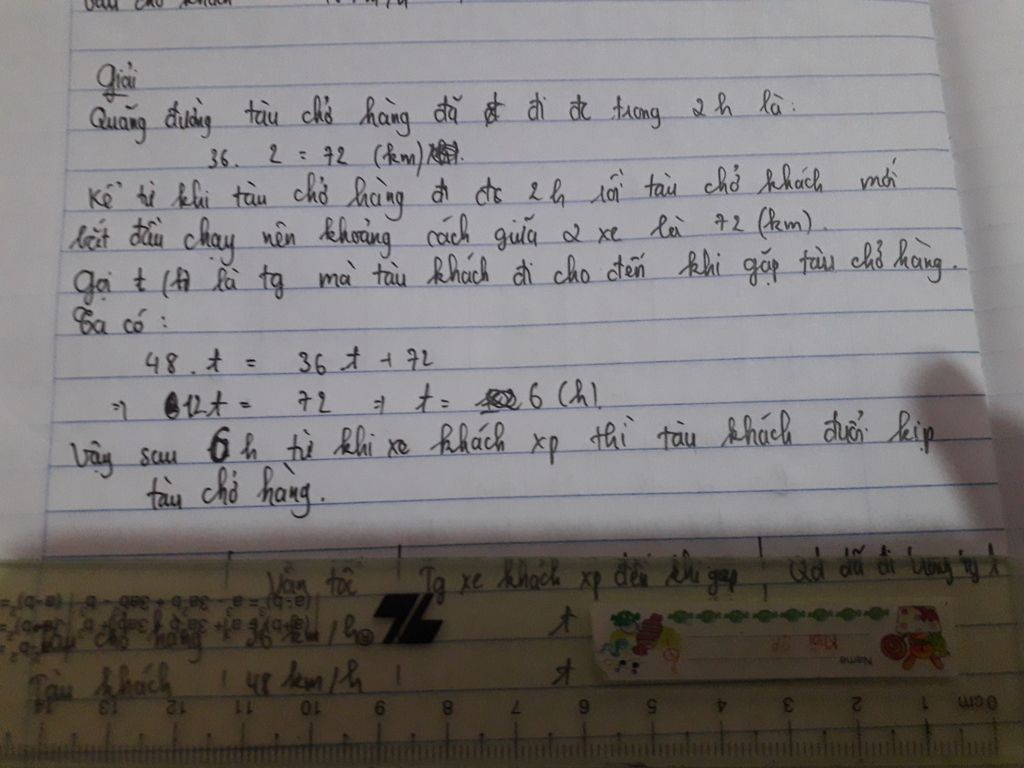 Giải
Quãng đường tàu chở hàng đã đi đc trong 2h là:
36. 2 = 72 (km)
Kể từ khi tàu chở hàng đi đc 2h rồi tàu chở khách mới
bắt đầu chạy nên khoảng cách giữa 2 xe là 72 (km).
Gọi t (h) là tg mà tàu khách đi cho đến khi gặp tàu chở hàng.
Ta có:
48. t = 36 t + 72
⇒ 12t = 72 ⇒ t = 6 (h).
Vậy sau 6 h từ khi xe khách xp thì tàu khách đuổi kịp
tàu chở hàng.
Vận tốc Tg xe khách xp đến khi gặp Qđ đã đi trong tg t
chở hàng 36 km/h t
Tàu khách 48 km/h t
Name
14 13 12 11 10 9 8 7 6 5 4 3 2 1 0cm